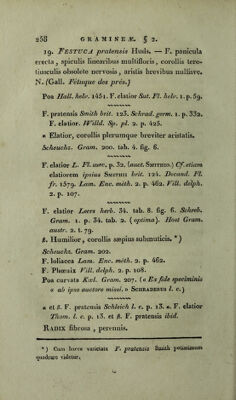 258 GRAMINEÆ. § 2.
19. FESTUCA pratensis Huds. — F. panicula
erecta, spiculis linearibus multifloris, corollis tere-
tiusculis obsolete nervosis, aristis brevibus nullisve.
N. (Gall. Fétuque des prés.)
Poa Hall. helv. 1451. F. elatior Sut. Fl. helv. 1. p. 59.
F. pratensis Smith brit. 123. Schrad. germ. 1. p. 332.
F. elatior. Willd. Sp. pl. 2. p. 425.
α Elatior, corollis plerumque breviter aristatis.
Scheuchz. Gram. 200. tab. 4. fig. 6.
F. elatior L. Fl. suec. p. 32. (auct. SMITHIO.) Cf. etiam
elatiorem ipsius SMITHII brit. 124. Decand. Fl.
fr. 1579. Lam. Enc. méth. 2. p. 462. Vill. delph.
2. p. 107.
F. elatior Leers herb. 34. tab. 8. fig. 6. Schreb.
Gram. 1. p. 34. tab. 2. (optima). Host Gram.
austr. 2. t. 79.
β. Humilior, corollis sæpius submuticis. *)
Scheuchz. Gram. 202.
F. loliacea Lam. Enc. méth. 2. p. 462.
F. Phœnix Vill. delph. 2. p. 108.
Poa curvata Kœl. Gram. 207. (« Ex fide speciminis
« ab ipso auctore missi. » SCHRADERUS l. c.)
α et β. F. pratensis Schleich l. c. p. 13. α. F. elatior
Thom. l. c. p. 13. et β. F. pratensis ibid.
RADIX fibrosa, perennis.
*) Cum hacce varietate F. pratensis Smith potissimum
quadrare videtur.